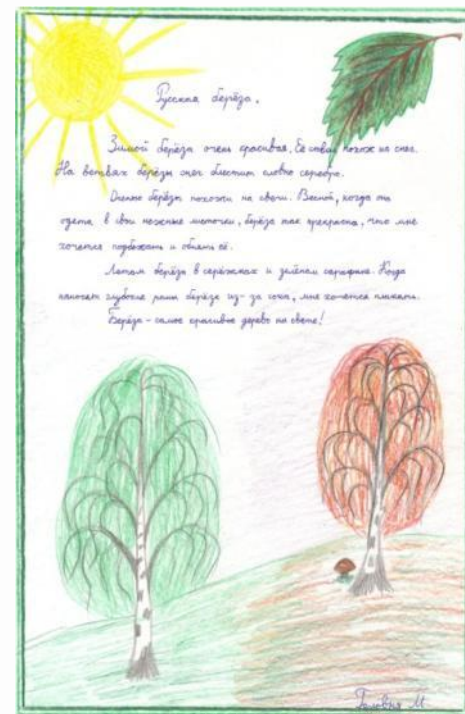 Русская берёза.
Зимой берёза очень красивая. Её ствол похож на снег.
На ветвях берёзы снег блестит словно серебро.
Осенью берёзы похожи на свечи. Весной, когда она
одета в свои нежные листочки, берёза так прекрасна, что мне
хочется подбежать и обнять её.
Летом берёза в серёжках и зелёном сарафане. Когда
наносят глубокие раны берёзе из-за сока, мне хочется плакать.
Берёза - самое красивое дерево на свете!
Головня М